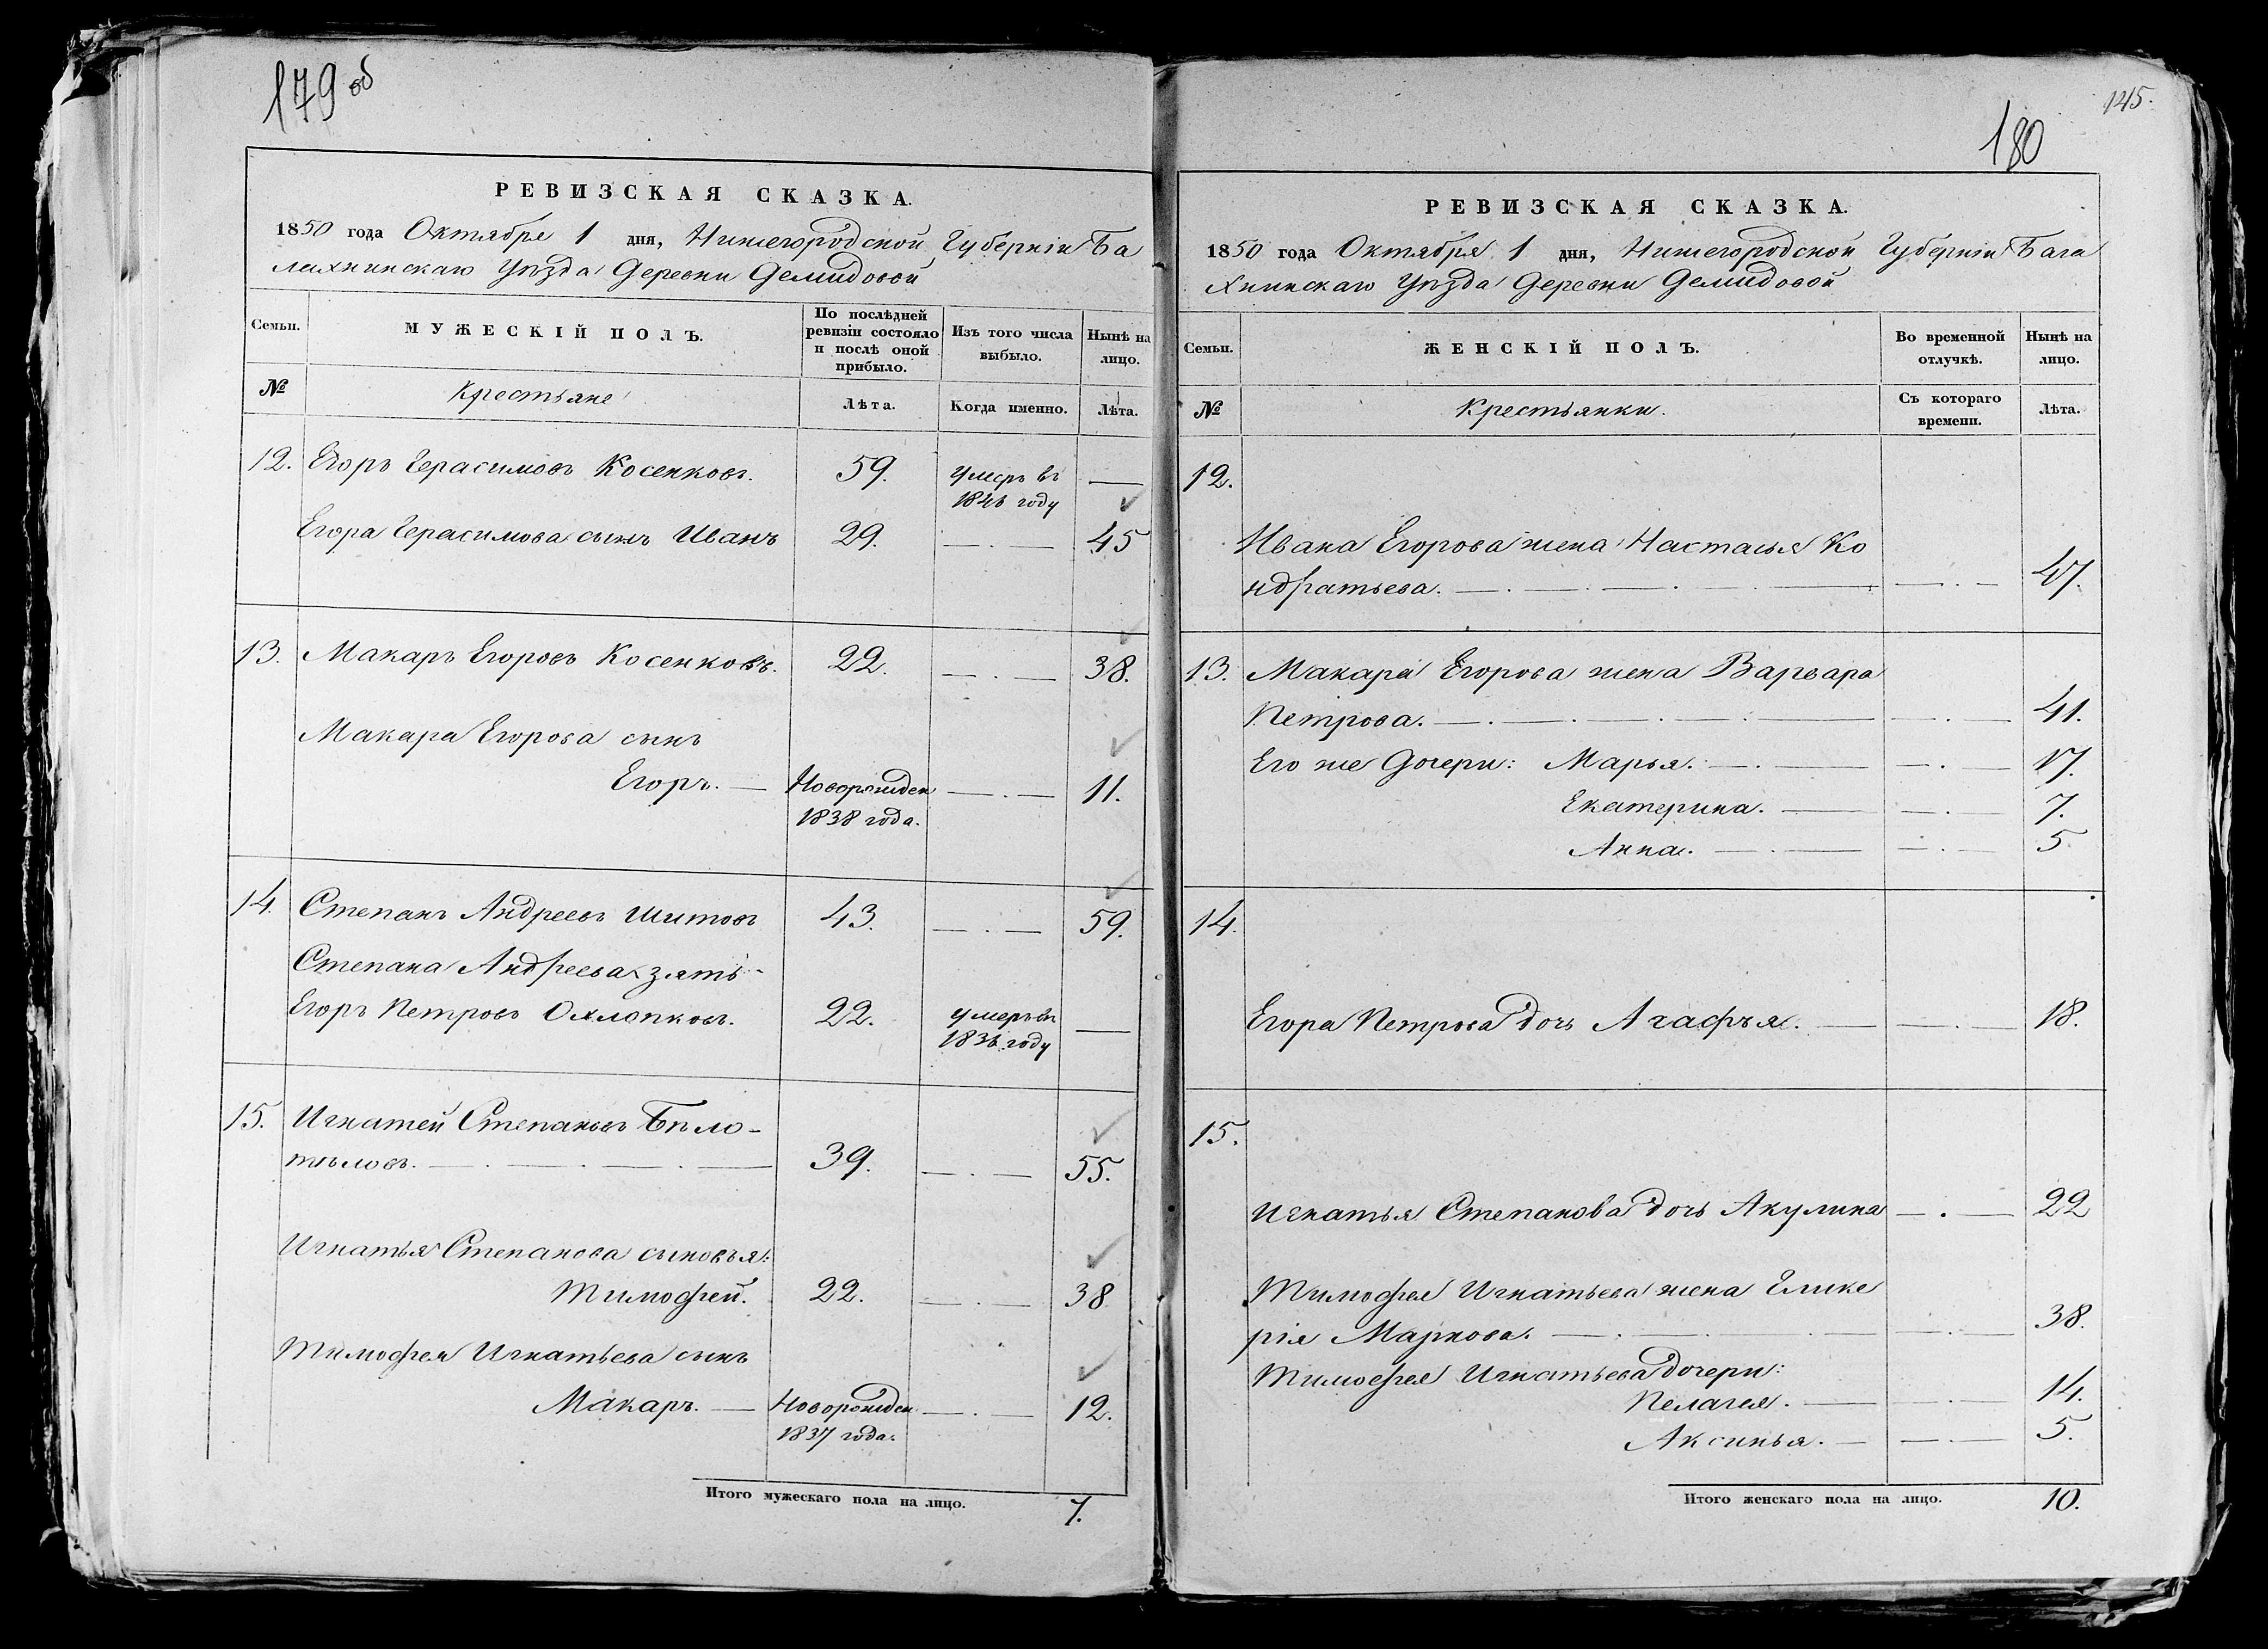 179 об
РЕВИЗСКАЯ СКАЗКА.
1850 года Октября 1 дня, Нижегородской Губерніи Ба
лахнинскаго Уѣзда Деревни Демидовой
Семьи.
МУЖЕСКІЙ ПОЛЪ.
По послѣдней ревизіи состояло и послѣ оной прибыло.
Изъ того числа выбыло.
Нынѣ на лицо.
№
Крестьяне
Лѣта.
Когда именно.
Лѣта.
12. Егоръ Герасимовъ Косенковъ. 59. умеръ въ —
году
Егора Герасимова сынъ Иванъ 29. — . — 45
13. Макаръ Егоровъ Косенковъ. 22. — . — 38.
Макара Егорова сынъ
Егоръ. — Новорожден — . — 11.
1838 года.
14. Степанъ Андреевъ Шитовъ 43. — . — 59.
Степана Андреева зять
Егоръ Петровъ Охлопковъ. 22. умеръ въ —
1836 году
15. Игнатей Степановъ Бѣло-
тѣловъ. — . — . — . — 39. — . — 55.
Игнатья Степанова сыновья:
Тимофей. 22. — . — 38
Тимофея Игнатьева сынъ
Макаръ. — Новорожден — . — 12.
1837 года.
Итого мужескаго пола на лицо. 7.
145.
180
РЕВИЗСКАЯ СКАЗКА.
1850 года Октября 1 дня, Нижегородской Губерніи Бала
хнинскаго Уѣзда Деревни Демидовой
Семьи.
ЖЕНСКІЙ ПОЛЪ.
Во временной отлучкѣ.
Нынѣ на лицо.
№
Крестьянки.
Съ котораго времени.
Лѣта.
12.
Ивана Егорова жена Настасья Ко
ндратьева. — . — . — . — . — — . — 47.
13. Макара Егорова жена Варвара
Петрова. — . — . — . — . — — . — 41.
Его же дочери: Марья. — . — — . — 17.
Екатерина. — — . — 7.
Анна. — . — — . — 5
14.
Егора Петрова дочь Агафья. — — . — 18.
15.
Игнатья Степанова дочь Акулина — . — 22
Тимофея Игнатьева жена Глике
рія Маркова. — . — . — — . — 38.
Тимофея Игнатьева дочери:
Пелагея. — — . — 14.
Аксинья. — — . — 5.
Итого женскаго пола на лицо. 10.